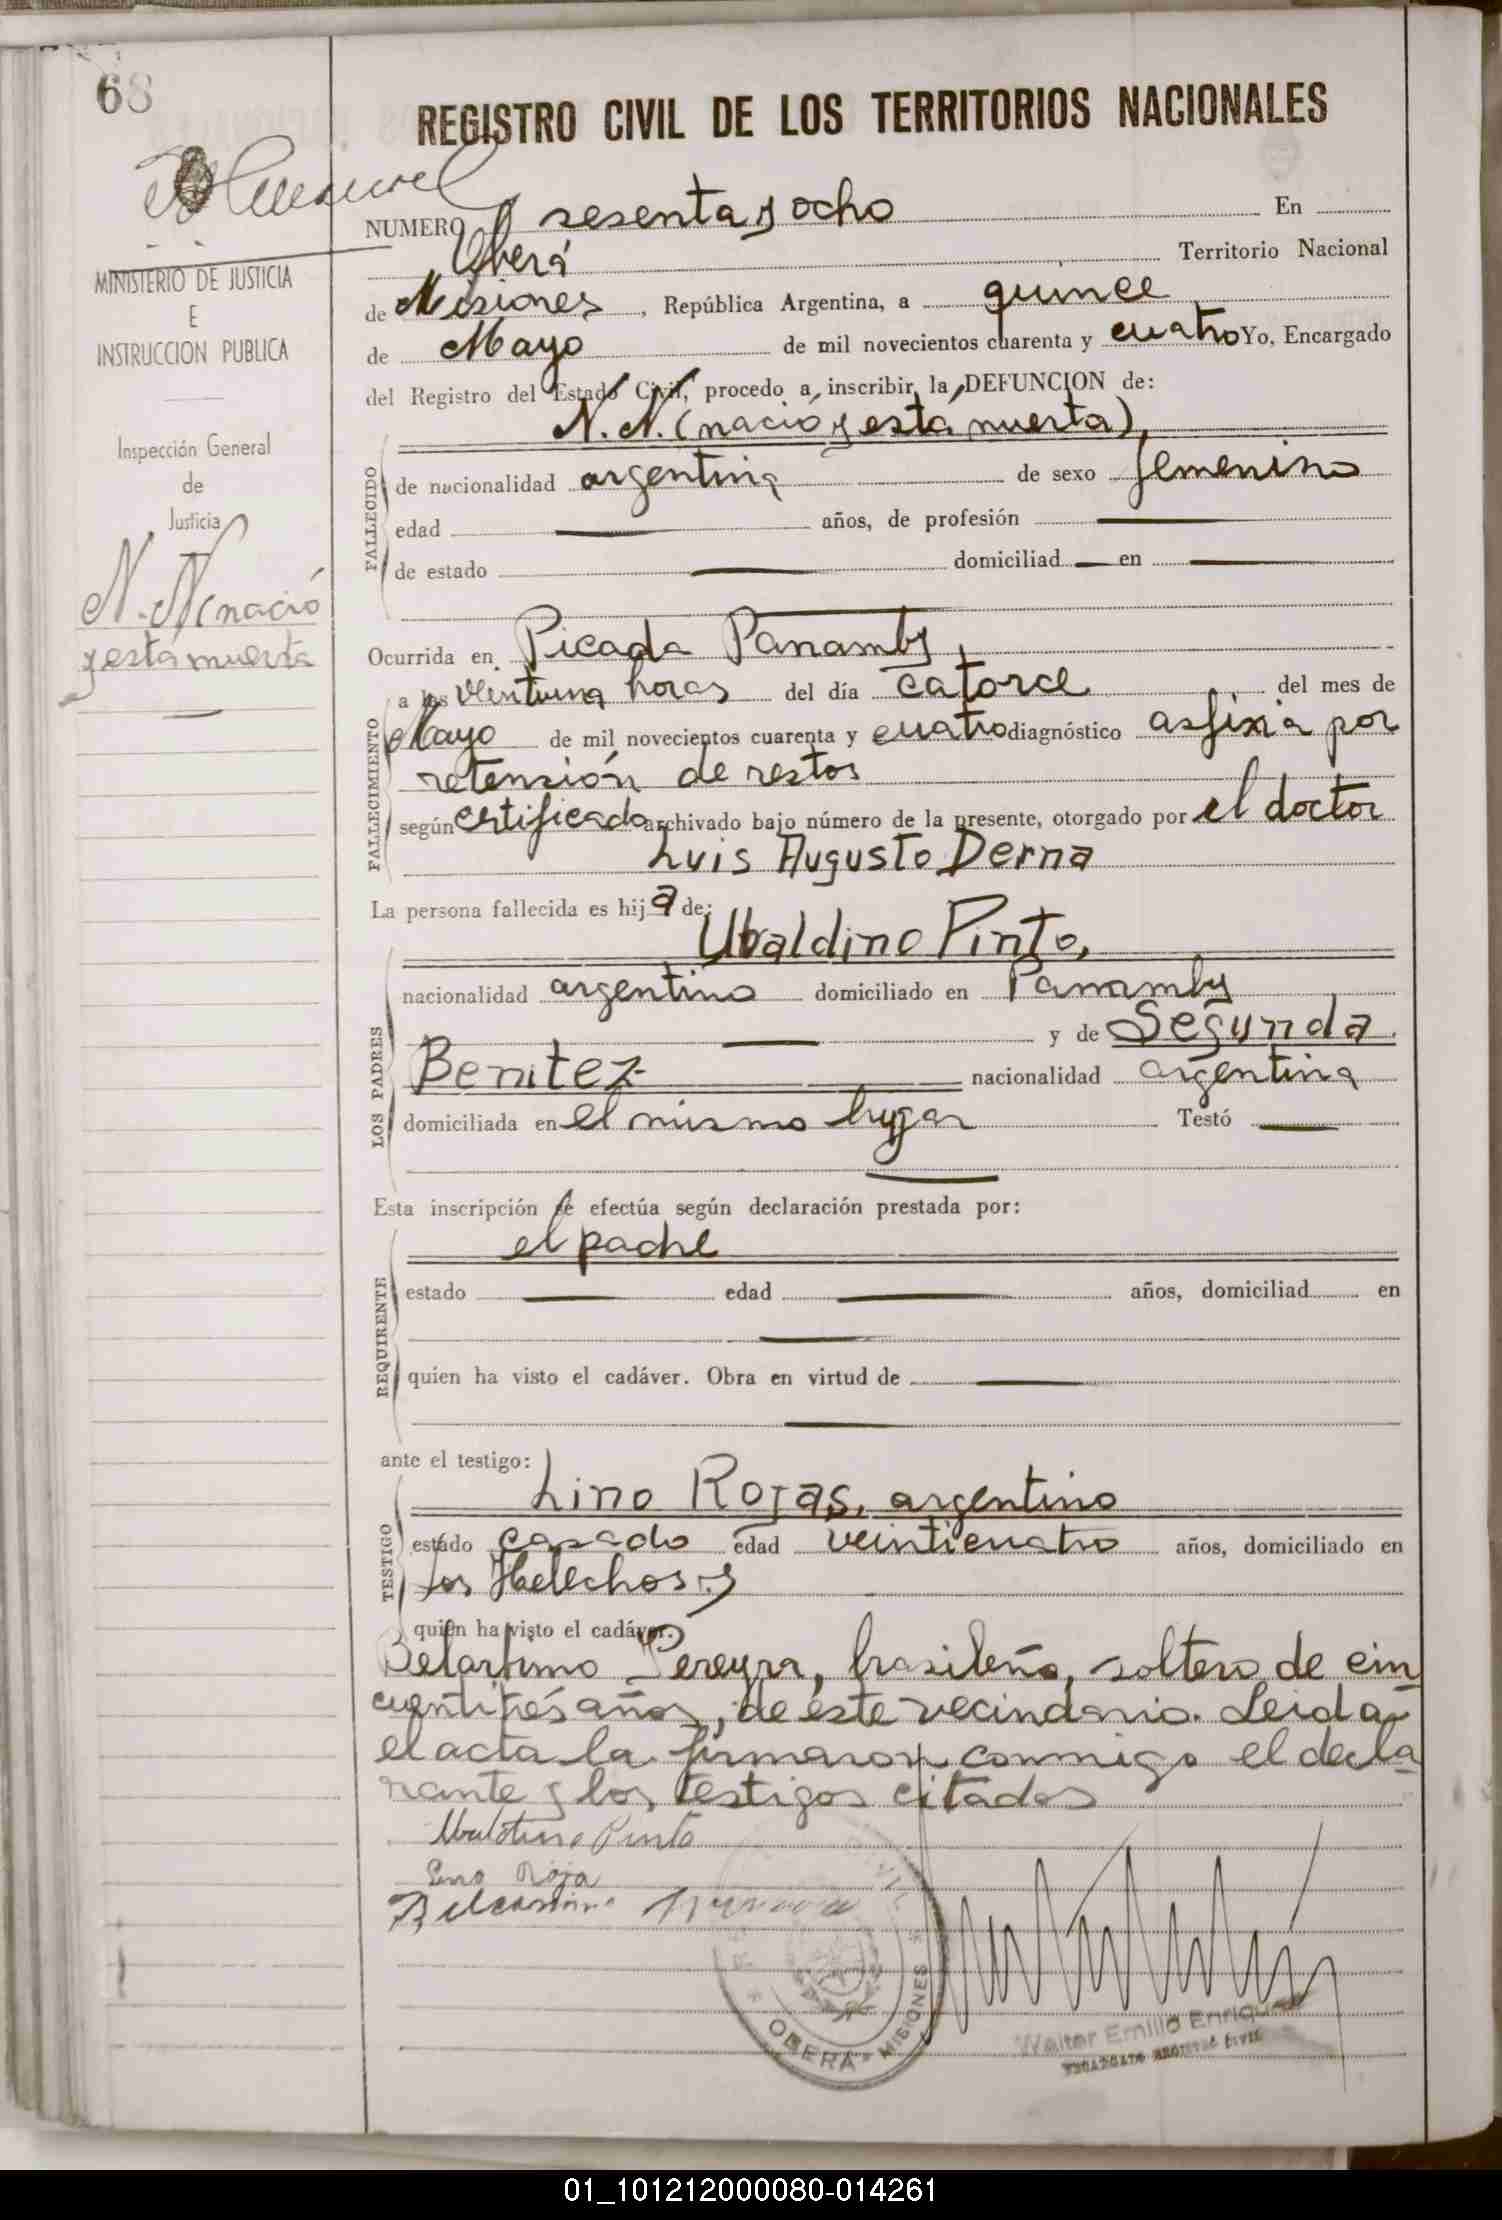 68
REGISTRO CIVIL DE LOS TERRITORIOS NACIONALES
NUMERO sesenta y ocho En
Oberá Territorio Nacional
de Misiones, República Argentina, a quince
de Mayo de mil novecientos cuarenta y cuatro Yo, Encargado
del Registro del Estado Civil, procedo a inscribir la DEFUNCION de:
N. N. (nació y está muerta),
FALLECIDO
de nacionalidad argentina de sexo femenino
edad años, de profesión
de estado domiciliad en
Ocurrida en Picada Panamby,
FALLECIMIENTO
a las veintiuna horas del día catorce del mes de
Mayo de mil novecientos cuarenta y cuatro diagnóstico asfixia por
retensión de restos
según certificado archivado bajo número de la presente, otorgado por el doctor
Luis Augusto Derna
La persona fallecida es hija de:
Ubaldino Pinto,
LOS PADRES
nacionalidad argentino domiciliado en Panamby
y de Segunda
Benitez nacionalidad argentina
domiciliada en el mismo lugar Testó
Esta inscripción se efectúa según declaración prestada por:
el padre
REQUIRENTE
estado edad años, domiciliad en
quien ha visto el cadáver. Obra en virtud de
ante el testigo:
Lino Rojas, argentino
TESTIGO
estado casado edad veinticuatro años, domiciliado en
Los Helechos y
quien ha visto el cadáver.
Pereyra, brasileño, soltero, de cin
cuentitrés años, de este vecindario. Leida
el acta la firmaron conmigo el decla
rante y los testigos citados
Ubaldino Pinto
Lino Roja
OBERÁ - MISIONES
Walter Emilio Enriquez
ENCARGADO REGISTRO CIVIL
MINISTERIO DE JUSTICIA
E
INSTRUCCION PUBLICA
Inspección General
de
Justicia
N. N. (nació
y está muerta
01_101212000080-014261